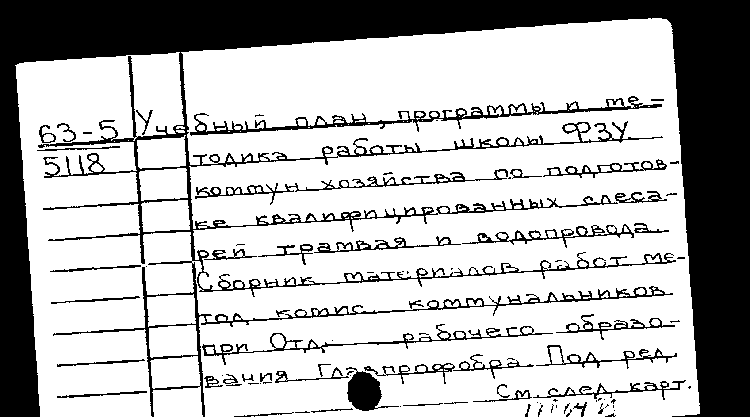 63-5
5118
Учебный план, программы и ме=
тодика работы школы ФЗУ
коммун. хозяйства по подготов-
ке квалифицированных слеса-
рей трамвая и водопровода.
Сборник материалов работ ме-
тод. комис. коммунальников
при Отд. рабочего образо-
вания Главпрофобра. Под ред.
См. след. карт.